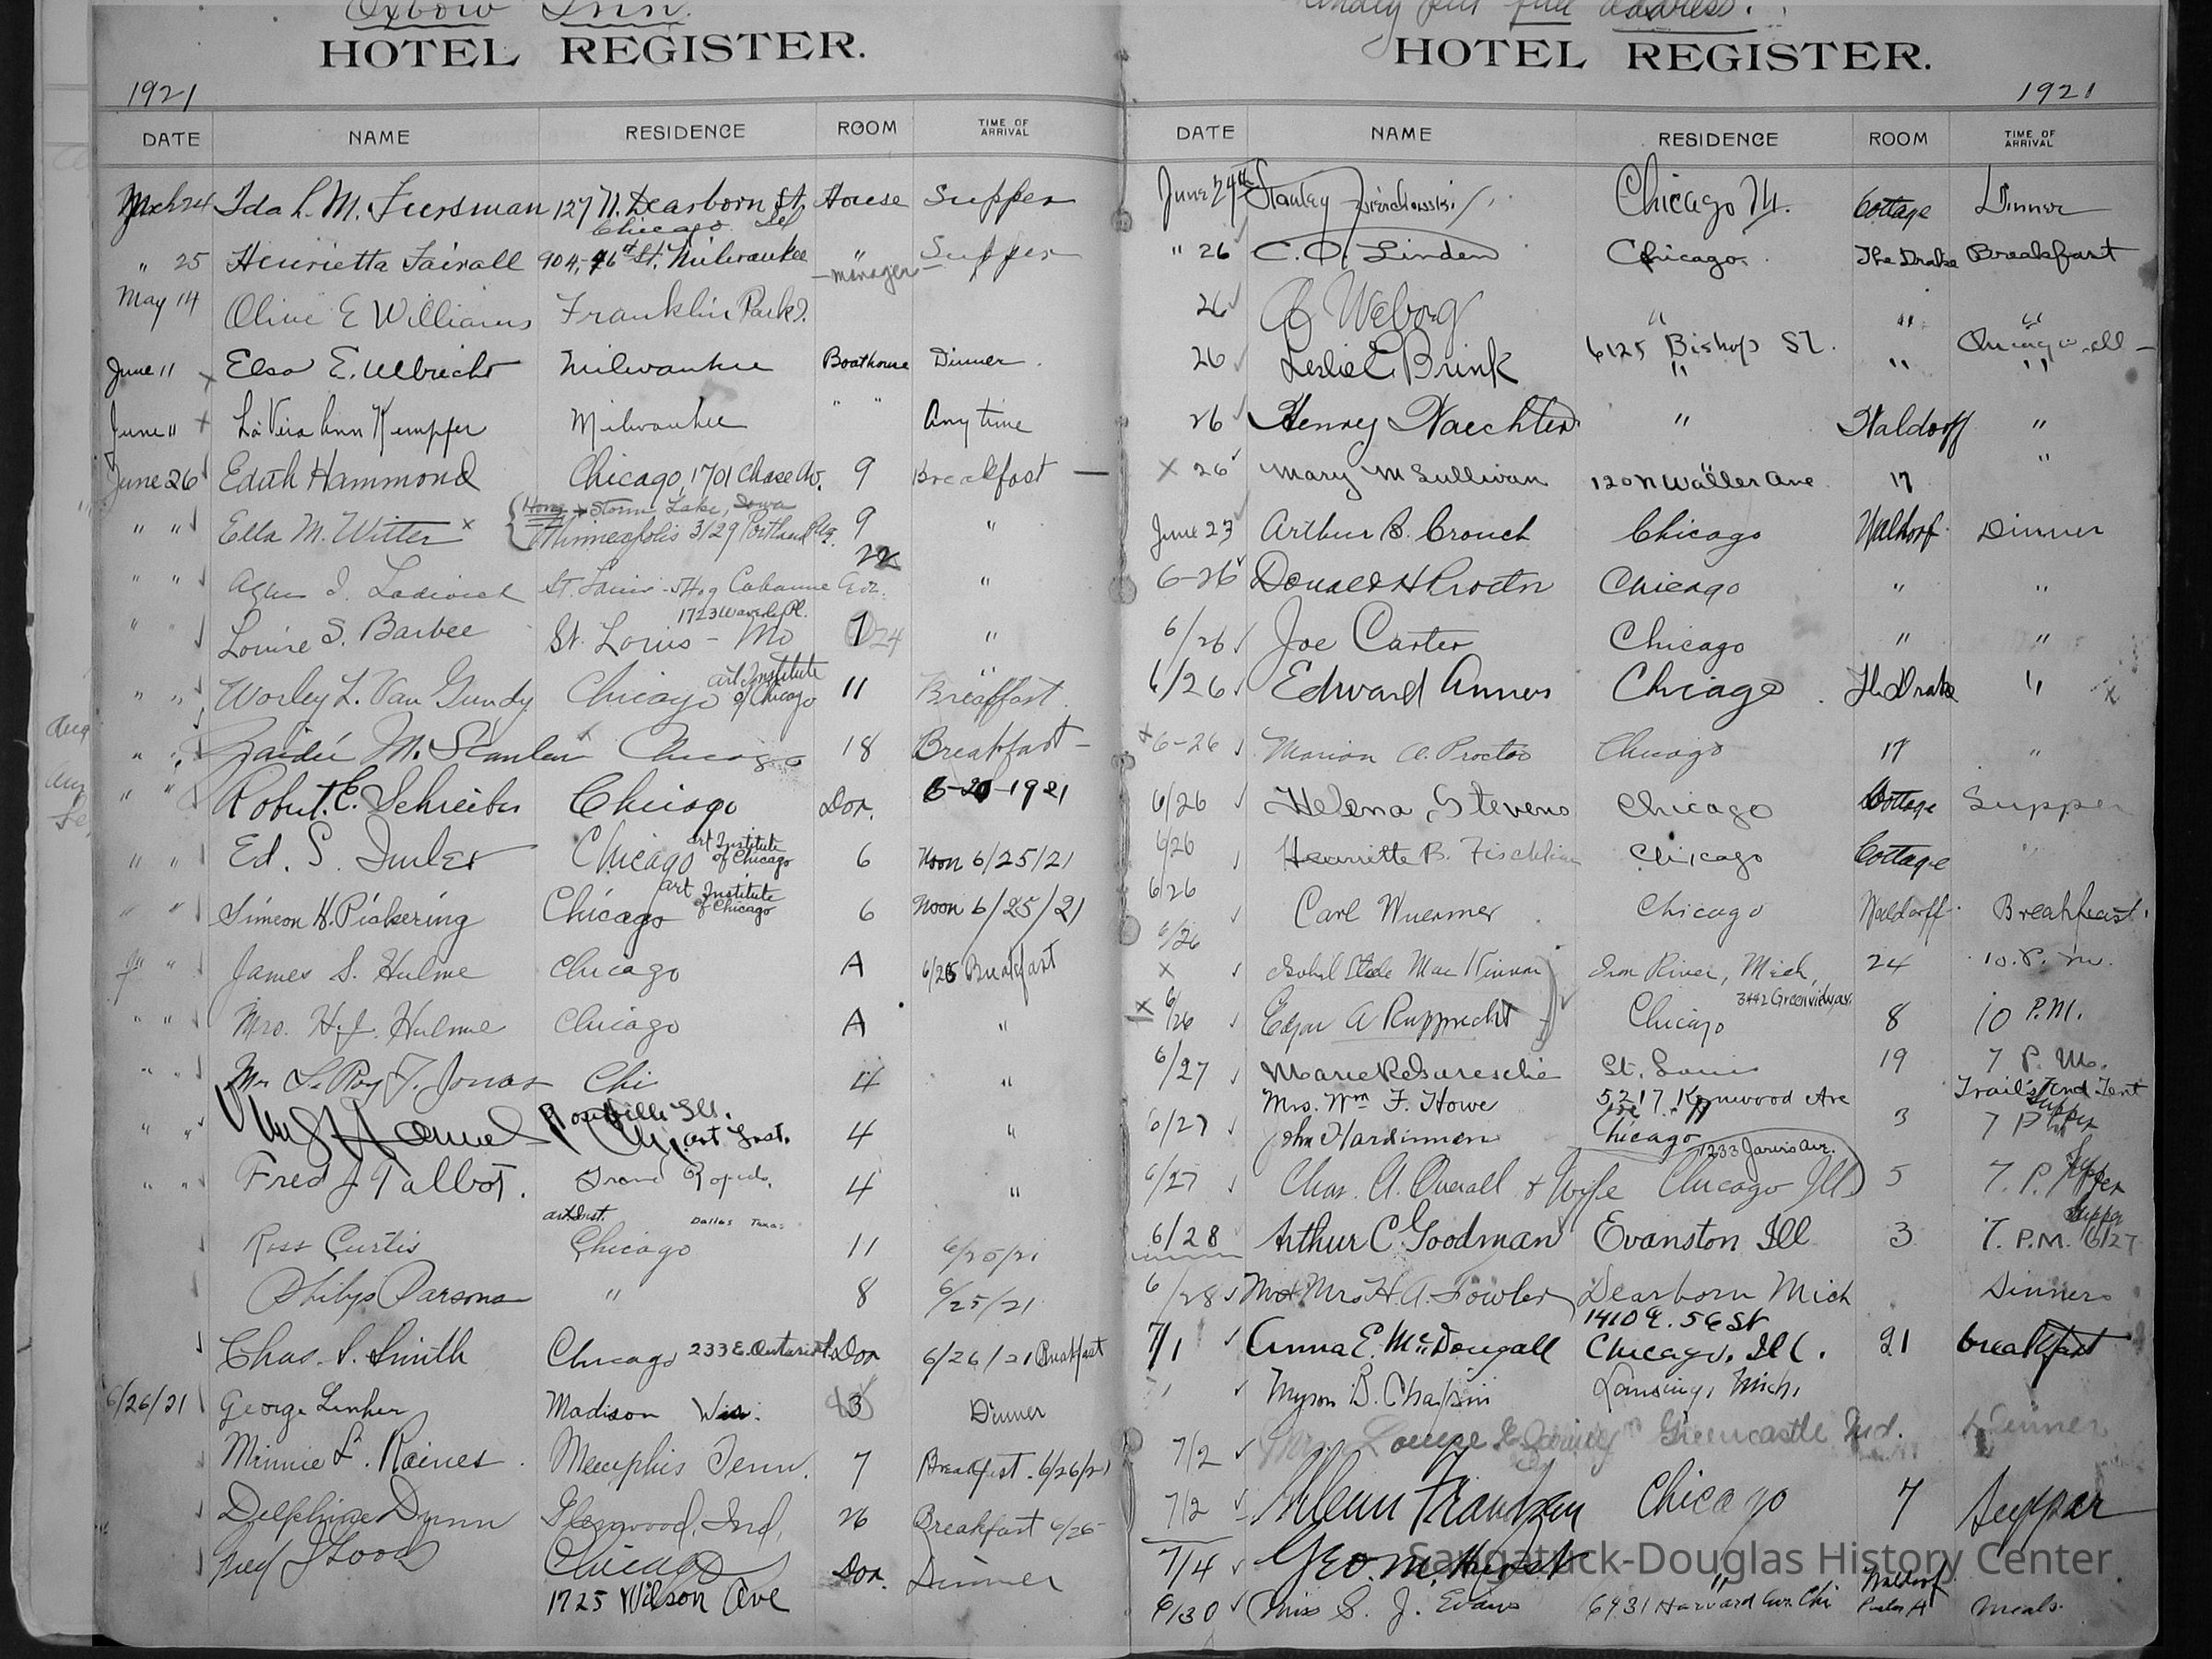 Oxbow Inn.
HOTEL REGISTER.
1921
DATE NAME RESIDENCE ROOM TIME OF ARRIVAL
24 Ida L. M. Fuersman 127 N. Dearborn St. House Supper
Chicago
" 25 Henrietta Fairall 904, 46th St. Milwaukee " Supper
- manager -
May 14 Olive E Williams Franklin Park
June 11 x Elsa E. Ulbricht Milwaukee Boathouse Dinner
June 11 x Kempfer Milwaukee " " Any time
June 26 Edith Hammond Chicago, 1701 Chase Av. 9 Breakfast —
Storm Lake, Iowa
" " Ella M. Witter x Minneapolis 3129 Portland 9 "
22
" " St. Louis Cabanne "
1723 Waverly Pl.
" Louise S. Barbee St. Louis - Mo 24 "
" " Worley L. Van Gundy Chicago Art Institute of Chicago 11 Breakfast
" " M. Scanlan Chicago 18 Breakfast -
" " Robert E. Schreiber Chicago Dor. 1921
" " Ed. S. Chicago Art Institute of Chicago 6 Noon 6/25/21
" " Simeon H. Pickering Chicago Art Institute of Chicago 6 Noon 6/25/21
" " James S. Hulme Chicago A Breakfast
" " Mrs. H. J. Hulme Chicago A "
" " Mr LeRoy T. Jonas Chi 4 "
" " Art Inst. 4 "
" " Fred J Talbot. Grand Rapids. 4 "
Art Inst. Dallas Texas
Ross Curtis Chicago 11
Parsons " 8 6/25/21
Chas. S. Smith Chicago 233 E. Ontario Dor 6/26/21 Breakfast
6/26/21 George Linker Madison Wis. 3 Dinner
Minnie L. Raines. Memphis Tenn. 7 Breakfast. 6/26/21
Delphine Dunn Glenwood, Ind, 26 Breakfast
Chicago Dor. Dinner
1725 Wilson Ave
Kindly put full address.
HOTEL REGISTER.
1921
DATE NAME RESIDENCE ROOM TIME OF ARRIVAL
June 24th Stanley Chicago Ill. Cottage Dinner
" 26 C. O. Linden Chicago. The Drake Breakfast
26 Weborg " " "
26 Leslie E Brink 6125 Bishop St. " "
26 Henry Waechter " Waldorf "
x 26 Mary M Sullivan 120 N Waller Ave 17 "
June 23 Arthur B. Crouch Chicago Waldorf Dinner
6-26 Donald H Proctor Chicago " "
6/26 Joe Carter Chicago " "
6/26 Edward Chicago The Drake "
x 6-26 Marion A. Proctor Chicago 17 "
6/26 Helena Stevens Chicago Cottage Supper
6/26 Henriette B. Chicago Cottage "
6/26 Carl Wuermer Chicago Waldorff Breakfast.
6/26
x Isobel Steele MacKinnon Iron River, Mich, 24 10. P. M.
x 6/26 Edgar A Rupprecht Chicago 3442 Greenview av. 8 10 P.M.
6/27 St. Louis 19 7 P. M.
Mrs. Wm F. Howe 5217 Kenwood Ave Trail's End Tent
6/27 Chicago 3 7 P Supper
1233 Jarvis Ave.
6/27 Chas. A. Overall & Wife Chicago Ill 5 7. P. Supper
Supper
6/28 Arthur C. Goodman Evanston Ill 3 7. P.M. 6/27
6/28 Mr & Mrs H. A. Fowler Dearborn Mich Dinner
1410 E. 56 St
7/1 Anna E. McDougall Chicago, Ill. 21 breakfast
Myron B. Chapin Lansing, Mich,
7/2 Mrs. Louise Greencastle Ind. Dinner
7/2 Chicago 7 Supper
7/4 Geo. M.
" Waldorf
6/30 Miss S. J. Evans 6931 Harvard Ave. Chi Meals
Saugatuck-Douglas History Center